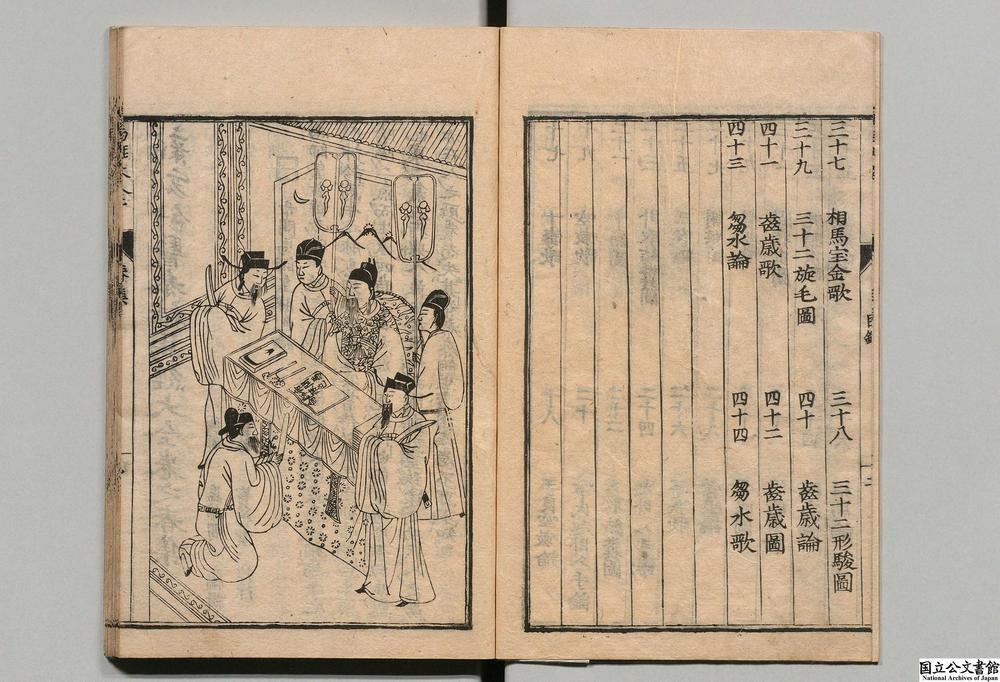 三十七 相馬宝金歌 三十八 三十二形駿圖
三十九 三十二旋毛圖 四十 齒歳論
四十一 齒歳歌 四十二 齒歳圖
四十三 芻水論 四十四 芻水歌
国立公文書館
National Archives of Japan